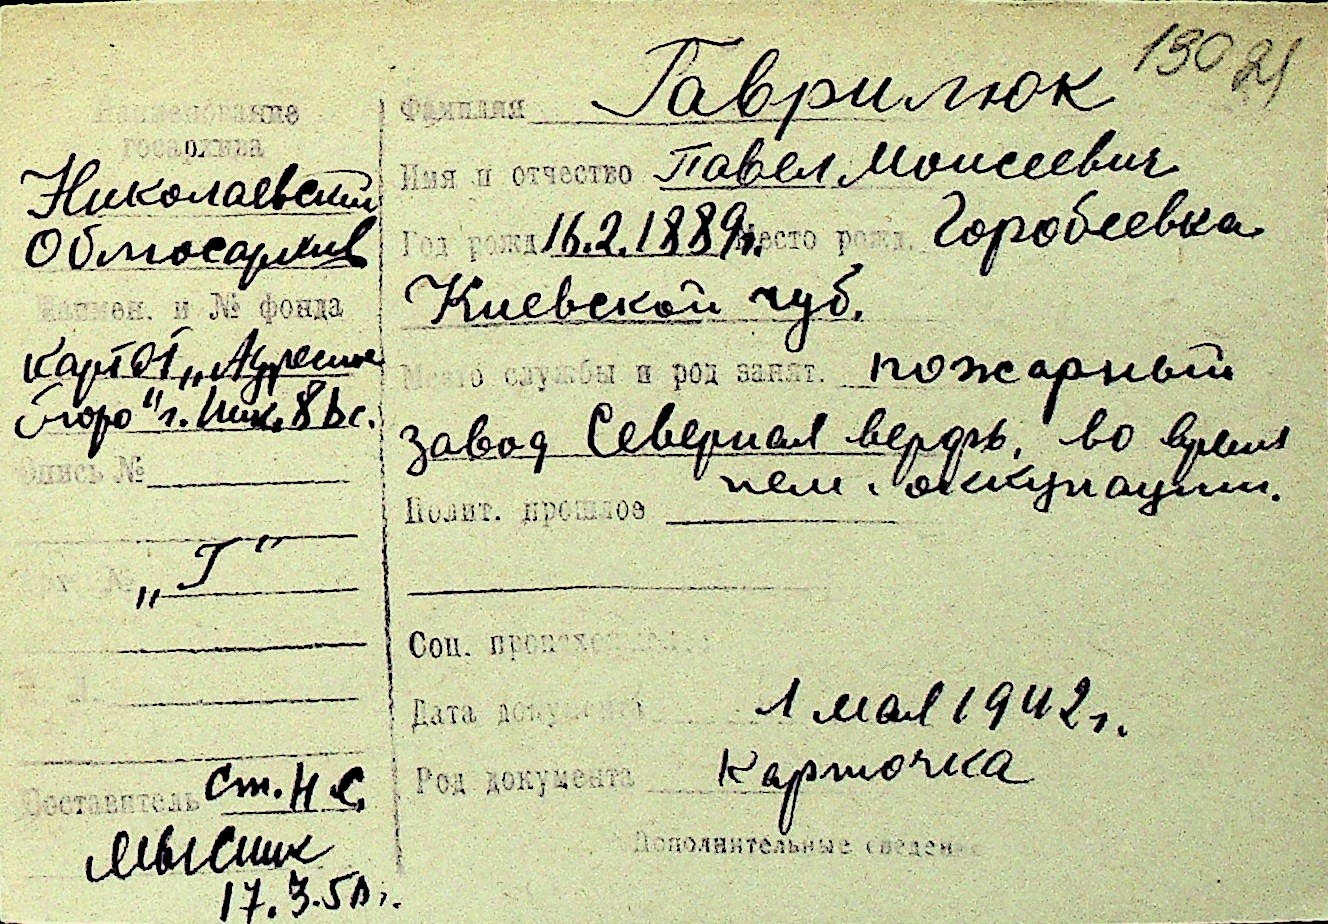 130 21
Наименование
госархива
Николаевский
Облгосархив
Наимен. и № фонда
Опись №
„Г“
Составитель Ст. Н.С.
Мысик
17.3.50г.
Фамилия Гаврилюк
Имя и отчество Павел Моисеевич
Год рожд. 16.2.1889г. Место рожд. Горобеевка
Киевской губ.
Место службы и род занят. пожарный
завод Северная верфь, во время
нем. оккупации.
Полит. прошлое
Соц. происхождение
Дата документа 1 мая 1942г.
Род документа карточка
Дополнительные сведения